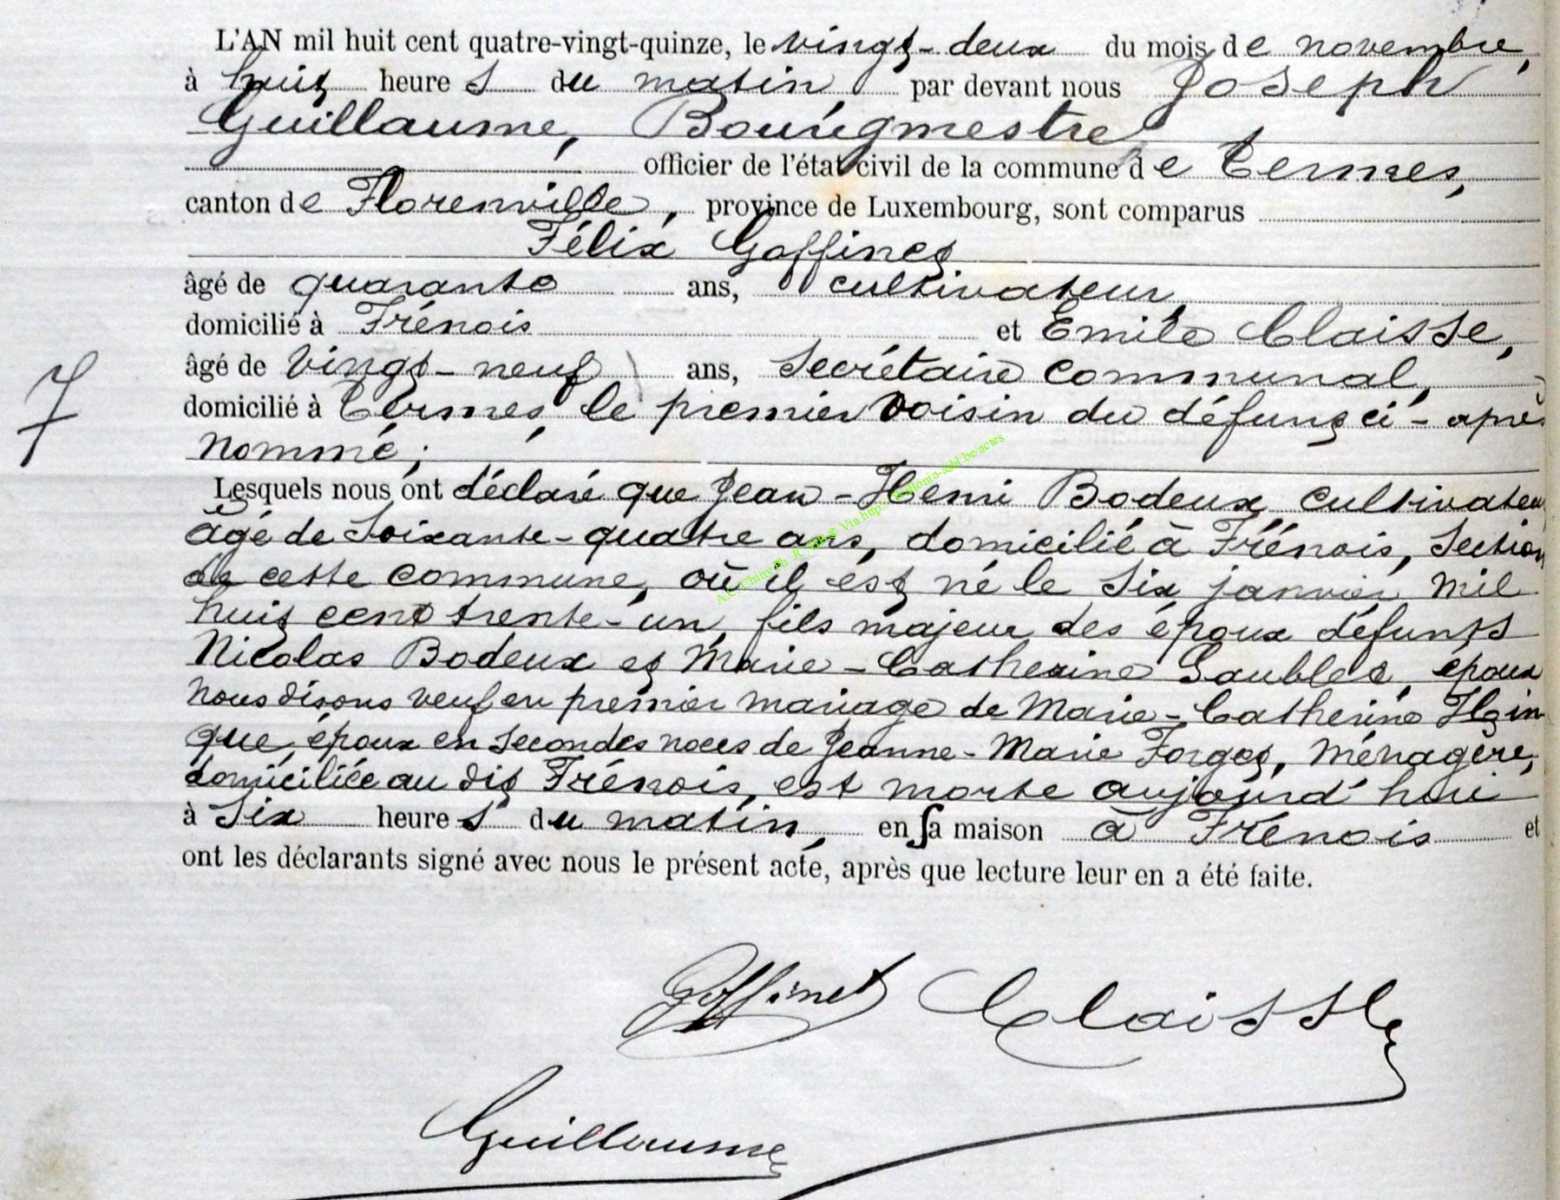 L'AN mil huit cent quatre-vingt-quinze, le vingt-deux du mois de novembre,
à huit heures du matin, par devant nous Joseph
Guillaume, Bourgmestre
officier de l'état civil de la commune de Termes,
canton de Florenville, province de Luxembourg, sont comparus
Félix Goffinet
âgé de quarante ans, cultivateur,
domicilié à Frénois et Emile Claisse,
âgé de vingt-neuf ans, Secrétaire communal,
7
domicilié à Termes, le premier voisin du défunt ci-après
nommé;
Lesquels nous ont déclaré que Jean-Henri Bodeux cultivateur
âgé de soixante-quatre ans, domicilié à Frénois, Section
de cette commune, où il est né le six janvier mil
huit cent trente-un, fils majeur des époux défunts
Nicolas Bodeux et Marie-Catherine époux
nous disons veuf en premier mariage de Marie-Catherine
que, époux en secondes noces de Jeanne-Marie Forget, Ménagère,
domiciliée au dit Frénois, est morte aujourd'hui
à Six heures du matin, en sa maison à Frénois et
ont les déclarants signé avec nous le présent acte, après que lecture leur en a été faite.
Goffinet Claisse
Guillaume